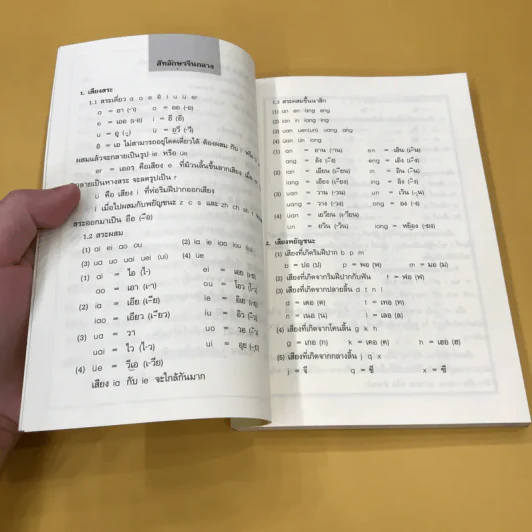 สัทลักษาจีนกลาง
1. เสียงสระ
1.1 สระเดี่ยว a o e ê i u ü er
a = อา (-า) o = ออ (-อ)
e = เออ (เ-อ) i = อี (-ี)
u = อู (-ู) ü = อวี (-วี)
ê = เอ ไม่สามารถอยู่โดดเดี่ยวได้ ต้องผสม กับ i หรือ ü
ผสมแล้วจะกลายเป็นรูป ie หรือ üe
er = เออร คือเสียง e ที่ม้วนลิ้นขึ้นจากเสียง เมื่อ
กลายเป็นหางสระ จะลดรูปเป็น r
ü คือ เสียง i ที่ห่อริมฝีปากออกเสียง
i เมื่อไปผสมกับพยัญชนะ z c s และ zh ch sh r
สระออกมาเป็น อือ (-ือ)
1.2 สระผสม
(1) ai ei ao ou (2) ia ie iao iou
(3) ua uo uai uei (ui) (4) üe
(1) ai = ไอ (ไ-) ei = เอย (เ-ย)
ao = เอา (เ-า) ou = โอว (โ-ว)
(2) ia = เอีย (เ-ีย) ie = อิเย
iao = เอียว (เ-ียว) iu = อิว (-ิว)
(3) ua = วา uo = วอ (-อ)
uai = ไว (ไ-ว) ui = อุย (-ุย)
(4) üe = วีเอ (เ-วีย)
เสียง ia กับ ie จะใกล้กันมาก
1.3 สระผสมขึ้นนาสิก
(1) an en ang eng
(2) ian in iang ing
(3) uan uen(un) uang ong
(4) üan ün iong
(1) an = อาน (-าน) en = เอิน (เ-ิน)
ang = อัง (-ัง) eng = เอิง (เ-ิง)
(2) ian = เอียน (เ-ียน) in = อิน (-ิน)
iang = เอียง (เ-ียง) ing = อิง (-ิง)
(3) uan = วาน (-วาน) un = เวิน
uang = วาง (-วาง) ong = อง (-ง)
(4) üan = เยวียน (เ-วียน)
ün = ยวิน (-วิน) iong =
2. เสียงพยัญชนะ
(1) เสียงที่เกิดริมฝีปาก b p m
b = ปอ (ป) p = พอ (พ) m = มอ (ม)
(2) เสียงที่เกิดจากริมฝีปากกับฟัน f = ฟอ (ฟ)
(3) เสียงที่เกิดจากปลายลิ้น d t n l
d = เตอ (ต) t = เทอ (ท)
n = เนอ (น) l = เลอ (ล)
(4) เสียงที่เกิดจากโคนลิ้น g k h
g = เกอ (ก) k = เคอ (ค) h = เฮอ (ฮ)
(5) เสียงที่เกิดจากกลางลิ้น j q x
j = จี q = ชี x = ซี